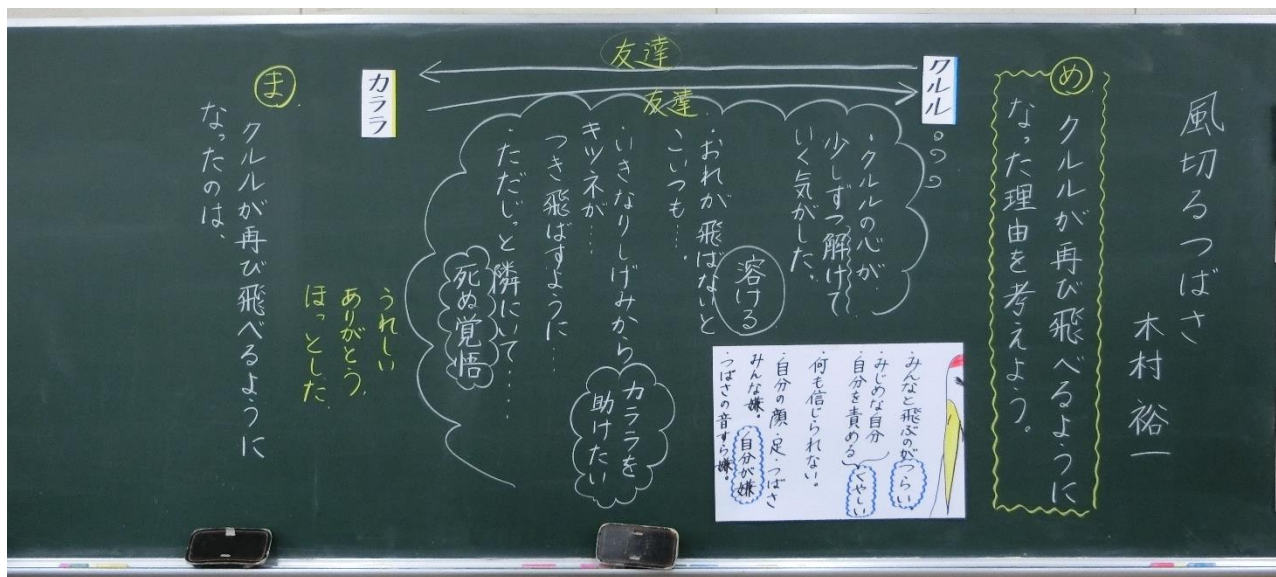 風切るつばさ
木村裕一
め
クルルが再び飛べるように
なった理由を考えよう。
クルル
友達
友達
カララ
・クルルの心が
少しずつ解けて
いく気がした。
溶ける
・おれが飛ばないと
こいつも…。
・いきなりしげみから
キツネが…
つき飛ばすように…
カララを
助けたい
・ただじっと隣にいて……
死ぬ覚悟
うれしい
ありがとう
ほっとした
・みんなと飛ぶのがつらい
・みじめな自分
・自分を責める
くやしい
何も信じられない。
・自分の顔・足・つばさ
みんな嫌。
自分が嫌
・つばさの音すら嫌。
ま
クルルが再び飛べるように
なったのは、